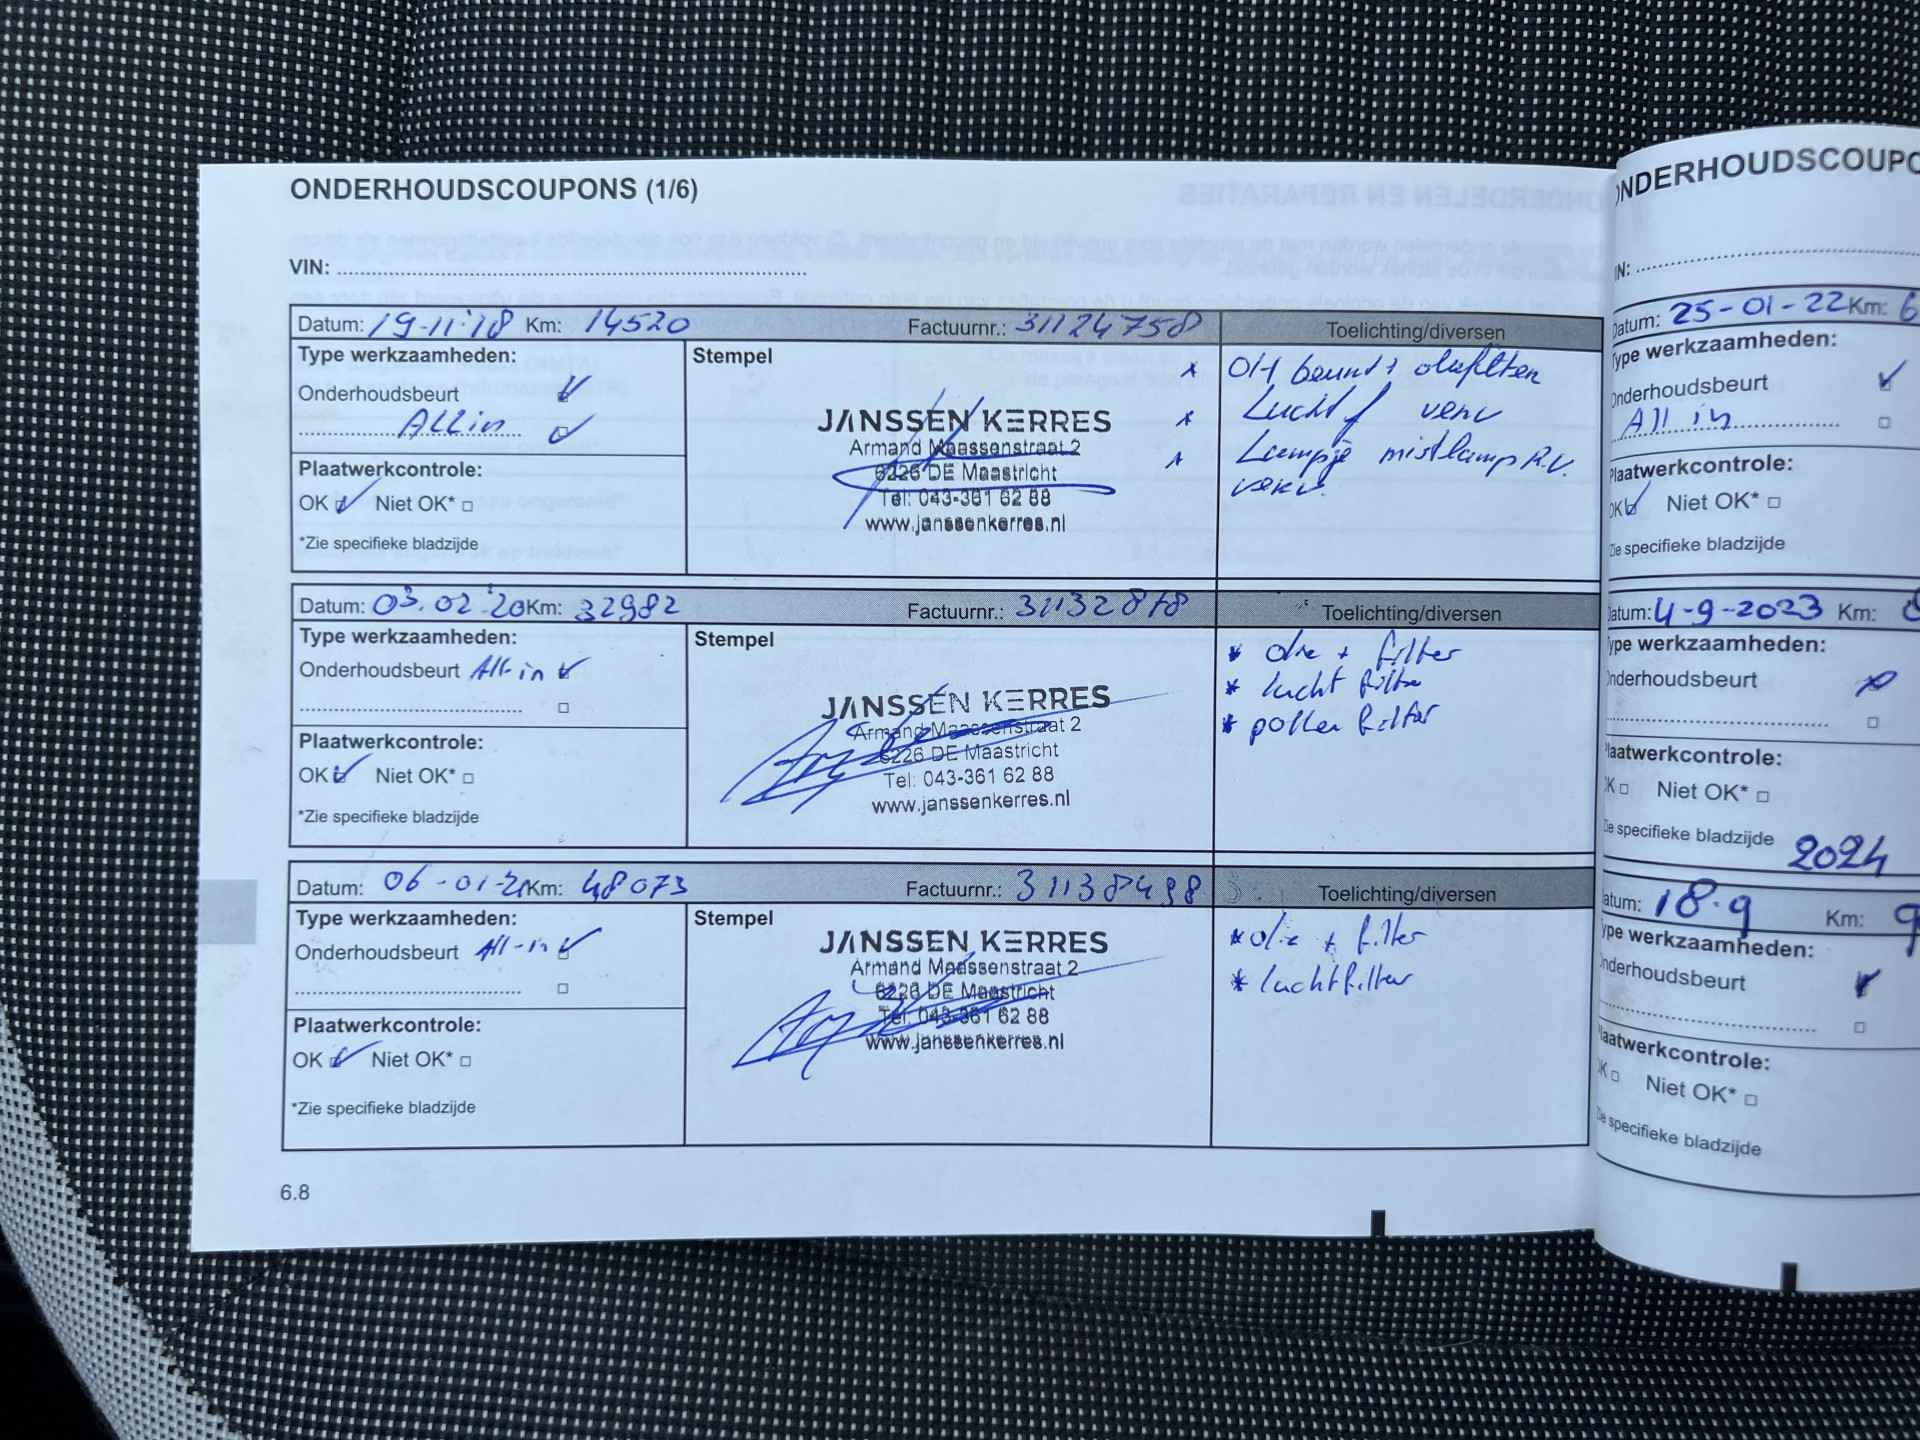 ONDERHOUDSCOUPONS (1/6)
VIN:
Datum: 19-11-18 Km: 14520 Factuurnr.: 31124758 Toelichting/diversen
Type werkzaamheden:
Onderhoudsbeurt
All in
Plaatwerkcontrole:
OK Niet OK*
*Zie specifieke bladzijde
Stempel
JANSSEN KERRES
Armand Maassenstraat 2
6226 DE Maastricht
Tel: 043-361 62 88
www.janssenkerres.nl
OH beurt +
Lucht f verv
Lampje mistlamp R.V.
verv.
Datum: 03.02.20 Km: 32982 Factuurnr.: 31132878 Toelichting/diversen
Type werkzaamheden:
Onderhoudsbeurt All-in
Plaatwerkcontrole:
OK Niet OK*
*Zie specifieke bladzijde
Stempel
JANSSEN KERRES
Armand Maassenstraat 2
6226 DE Maastricht
Tel: 043-361 62 88
www.janssenkerres.nl
* olie + filter
* lucht filter
* pollen filter
Datum: 06-01-21 Km: 48073 Factuurnr.: 31138498 Toelichting/diversen
Type werkzaamheden:
Onderhoudsbeurt All-in
Plaatwerkcontrole:
OK Niet OK*
*Zie specifieke bladzijde
Stempel
JANSSEN KERRES
Armand Maassenstraat 2
6226 DE Maastricht
Tel: 043-361 62 88
www.janssenkerres.nl
* olie + filter
* luchtfilter
6.8
ONDERHOUDSCOUPO
IN:
Datum: 25-01-22 Km: 6
Type werkzaamheden:
Onderhoudsbeurt
All in
Plaatwerkcontrole:
OK Niet OK*
Zie specifieke bladzijde
Datum: 4-9-2023 Km:
ype werkzaamheden:
Onderhoudsbeurt
laatwerkcontrole:
K Niet OK*
Zie specifieke bladzijde
2024
atum: 18.9 Km: 9
ype werkzaamheden:
nderhoudsbeurt
laatwerkcontrole:
K Niet OK*
ie specifieke bladzijde